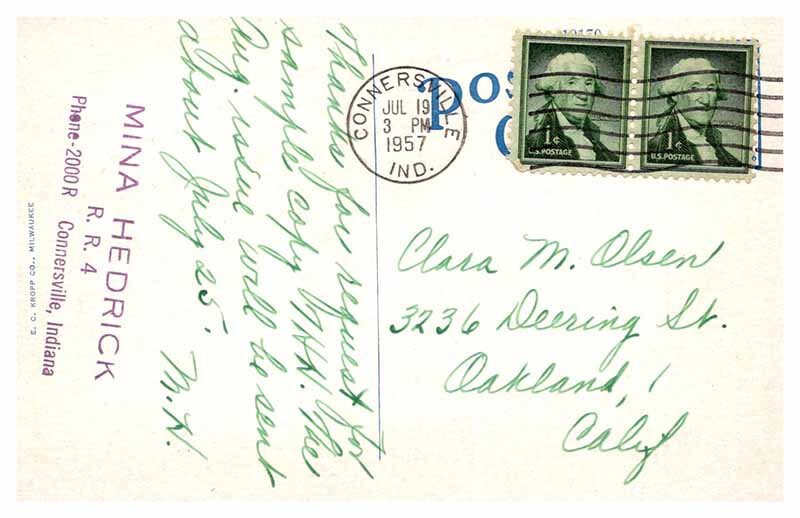 Thanks for request for
sample copy The
Aug. issue will be sent
about July 25.
M.H.
MINA HEDRICK
R. R. 4
Phone-2000R Connersville, Indiana
E. C. KROPP CO., MILWAUKEE
POS
CONNERSVILLE
JUL 19
3 PM
1957
IND.
1¢
U.S. POSTAGE
1¢
U.S. POSTAGE
Clara M. Olsen
3236 Deering St.
Oakland, 1
Calif